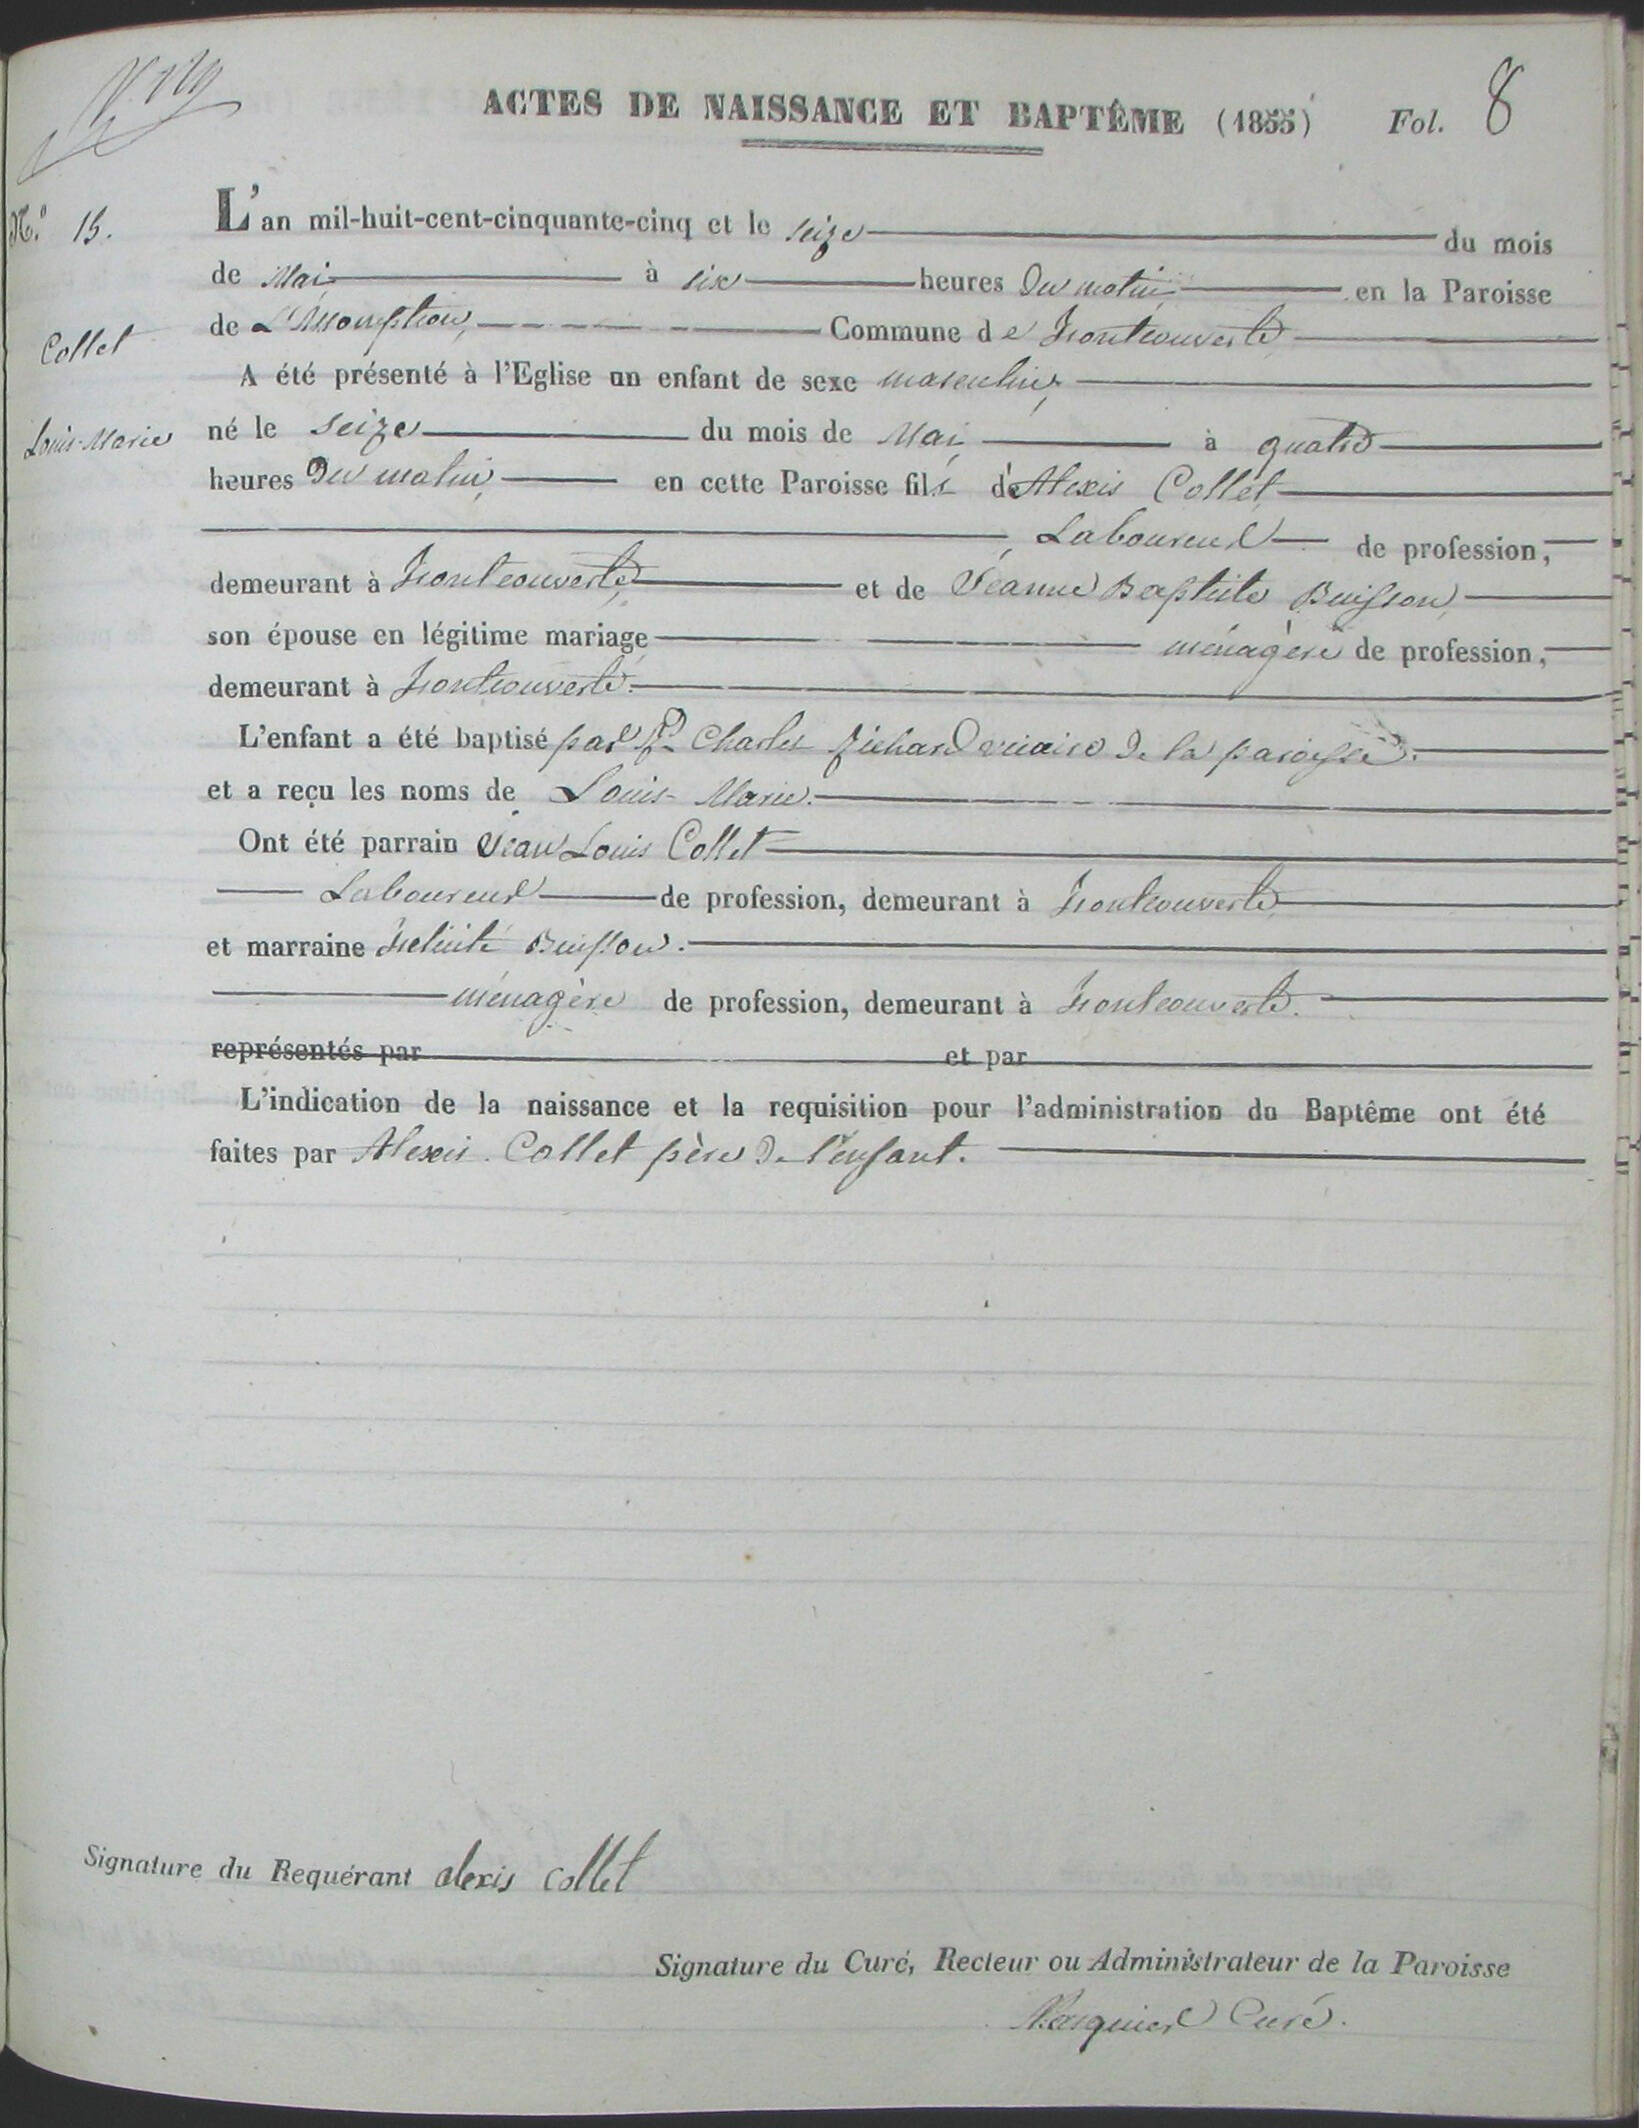 ACTES DE NAISSANCE ET BAPTÊME (1855) Fol. 8
N.º 15.
Collet
Louis-Marie
L'an mil-huit-cent-cinquante-cinq et le seize du mois
de Mai à six heures du matin en la Paroisse
de L'Assomption, Commune de Frontcouverte
A été présenté à l'Eglise un enfant de sexe masculin,
né le seize du mois de Mai, à quatre
heures du matin, en cette Paroisse fils d'Alexis Collet
, Laboureur de profession,
demeurant à Frontcouverte, et de Jeanne Baptiste Buisson,
son épouse en légitime mariage ménagère de profession,
demeurant à Frontcouverte.
L'enfant a été baptisé par Rd Charles Richard vicaire de la paroisse.
et a reçu les noms de Louis-Marie.
Ont été parrain Jean Louis Collet
Laboureur de profession, demeurant à Frontcouverte
et marraine Félicité Buisson.
ménagère de profession, demeurant à Frontcouverte.
représentés par et par
L'indication de la naissance et la requisition pour l'administration du Baptême ont été
faites par Alexis Collet père de l'enfant.
Signature du Requérant alexis collet
Signature du Curé, Recteur ou Administrateur de la Paroisse
Curé.